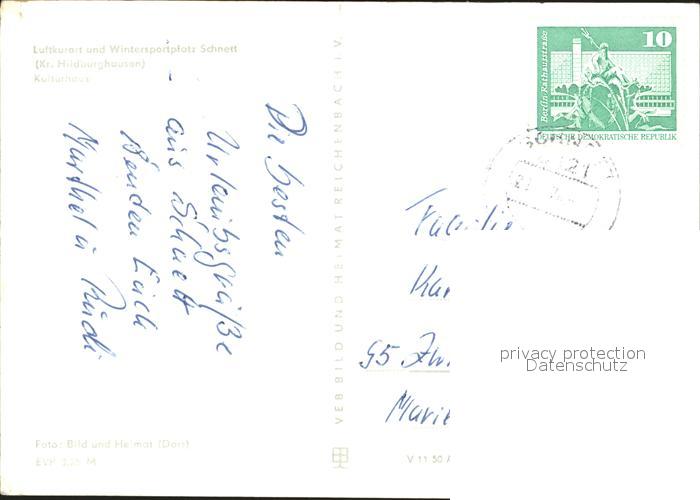 Luftkurort und Wintersportplatz Schnett
(Kr. Hildburghausen)
Kulturhaus
Die besten
Urlaubsgrüße
aus Schnett
senden Euch
Marthel u Rudi
Foto: Bild und Heimat (Dorst)
EVP 0,25 M
VEB BILD UND HEIMAT REICHENBACH I. V.
V 11 50 /
10
Berlin, Rathausstraße
DEUTSCHE DEMOKRATISCHE REPUBLIK
Familie
95
Marie
privacy protection
Datenschutz